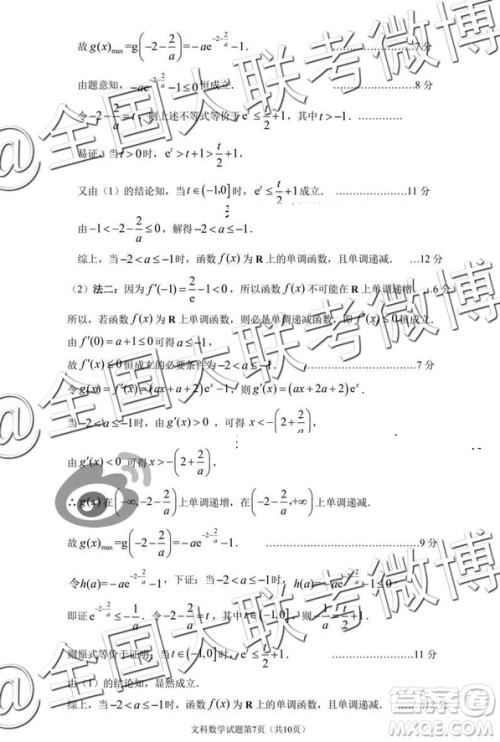 故g(x)max=g(-2-2/a)=-ae^(-2-2/a)-1. 7分
由题意知，-ae^(-2-2/a)-1≤0恒成立. ………………8分
令-2-2/a=t，则上述不等式等价于e^t≤t/2+1，其中t>-1.
易证，当t>0时，e^t>t+1>t/2+1，
又由（1）的结论知，当t∈(-1,0]时，e^t≤t/2+1成立. ………………11分
由-1<-2-2/a≤0，解得-2<a≤-1.
综上，当-2<a≤-1时，函数f(x)为R上的单调函数，且单调递减. …12分
（2）法二：因为f′(-1)=2/e-1<0，所以函数f(x)不可能在R上单调递增. 6分
所以，若函数f(x)为R上单调函数，则必是单调递减函数，即f′(x)≤0恒成立.
由f′(0)=a+1≤0可得a≤-1，
故f′(x)≤0恒成立的必要条件为-2<a≤-1. ………………7分
令g(x)=f′(x)=(ax+a+2)e^x-1，则g′(x)=(ax+2a+2)e^x.
当-2<a≤-1时，由g′(x)>0，可得x<-(2+2/a)，
由g′(x)<0可得x>-(2+2/a)，
∴g(x)在(-∞,-2-2/a)上单调递增，在(-2-2/a,+∞)上单调递减.
故g(x)max=g(-2-2/a)=-ae^(-2-2/a)-1. ………………9分
令h(a)=-ae^(-2-2/a)-1，下证：当-2<a≤-1时，h(a)=-ae^(-2-2/a)-1≤0
即证e^(-2-2/a)≤-1/a. 令-2-2/a=t，其中t∈(-1,0]，则-1/a=t/2+1.
则原式等价于证明，当t∈(-1,0]时，e^t≤t/2+1. ………………11分
由（1）的结论知，显然成立.
综上，当-2<a≤-1时，函数f(x)为R上的单调函数，且单调递减. …12分
文科数学试题第7页（共10页）
@全国大联考微博
@全国大联考微博
@全国大联考微博